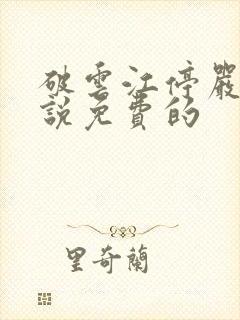 破雲江停嚴
說免費的
里奇蘭